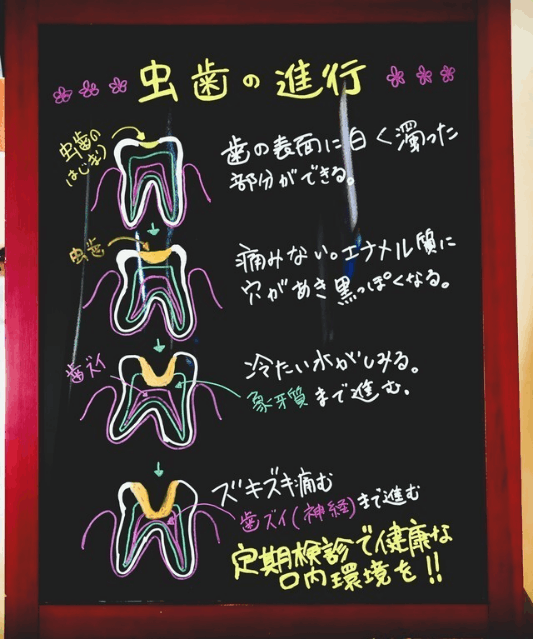 虫歯の進行
虫歯の
はじまり
歯の表面に白く濁った
部分ができる。
虫歯
痛みない。エナメル質に
穴があき黒っぽくなる。
歯ズイ
冷たい水がしみる。
象牙質まで進む。
ズキズキ痛む
歯ズイ(神経)まで進む
定期検診で健康な
口内環境を!!